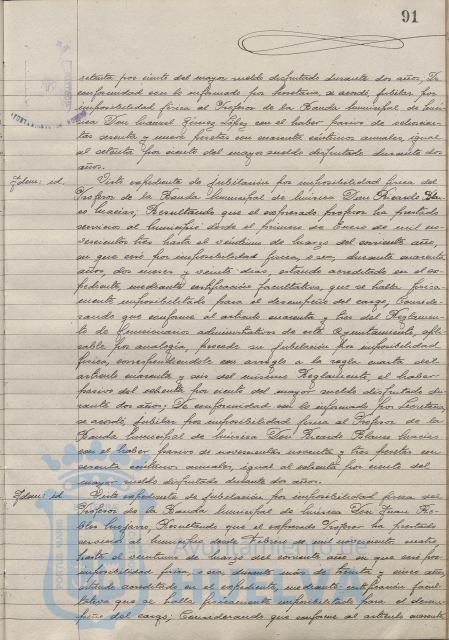 91
setenta por ciento del mayor sueldo disfrutado durante dos años. De
conformidad con lo informado por Secretaría, se acordó, jubilar por
imposibilidad física al Profesor de la Banda Municipal de Mú-
sica Don Manuel Gómez López con el haber pasivo de setecien-
tas sesenta y nueve pesetas con cuarenta céntimos anuales, igual
al setenta por ciento del mayor sueldo disfrutado durante dos
años.
Idem. id. Visto expediente de jubilación por imposibilidad física del
Profesor de la Banda Municipal de música Don Ricardo Blan-
co Macías; Resultando que el expresado profesor ha prestado
servicio al municipio desde el primero de Enero de mil no-
vecientos tres hasta el veintiuno de Marzo del corriente año,
en que cesó por imposibilidad física, o sea, durante cuarenta
años, dos meses y veinte días, estando acreditado en el ex-
pediente, mediante certificación facultativa, que se halla física-
mente imposibilitado para el desempeño del cargo; Conside-
rando que conforme al artículo cuarenta y tres del Reglamen-
to de funcionarios administrativos de este Ayuntamiento, apli-
cable por analogía, procede su jubilación por imposibilidad
física, correspondiéndole con arreglo a la regla cuarta del
artículo cuarenta y seis del mismo Reglamento, el haber
pasivo del ochenta por ciento del mayor sueldo disfrutado du-
rante dos años; De conformidad con lo informado por Secretaría,
se acordó, jubilar por imposibilidad física al Profesor de la
Banda Municipal de música Don Ricardo Blanco Macías
con el haber pasivo de novecientas noventa y tres pesetas con
sesenta céntimos anuales, igual al ochenta por ciento del
mayor sueldo disfrutado durante dos años.
Idem. id. Visto expediente de jubilación por imposibilidad física del
Profesor de la Banda Municipal de música Don Juan Ro-
bles; Resultando que el expresado Profesor ha prestado
servicio al municipio desde Febrero de mil novecientos
hasta el veintiuno de Marzo del corriente año en que cesó por
imposibilidad física, o sea durante más de treinta y cinco años,
estando acreditado en el expediente, mediante certificación facul-
tativa que se halla físicamente imposibilitado para el desem-
peño del cargo; Considerando que conforme al artículo cuarenta